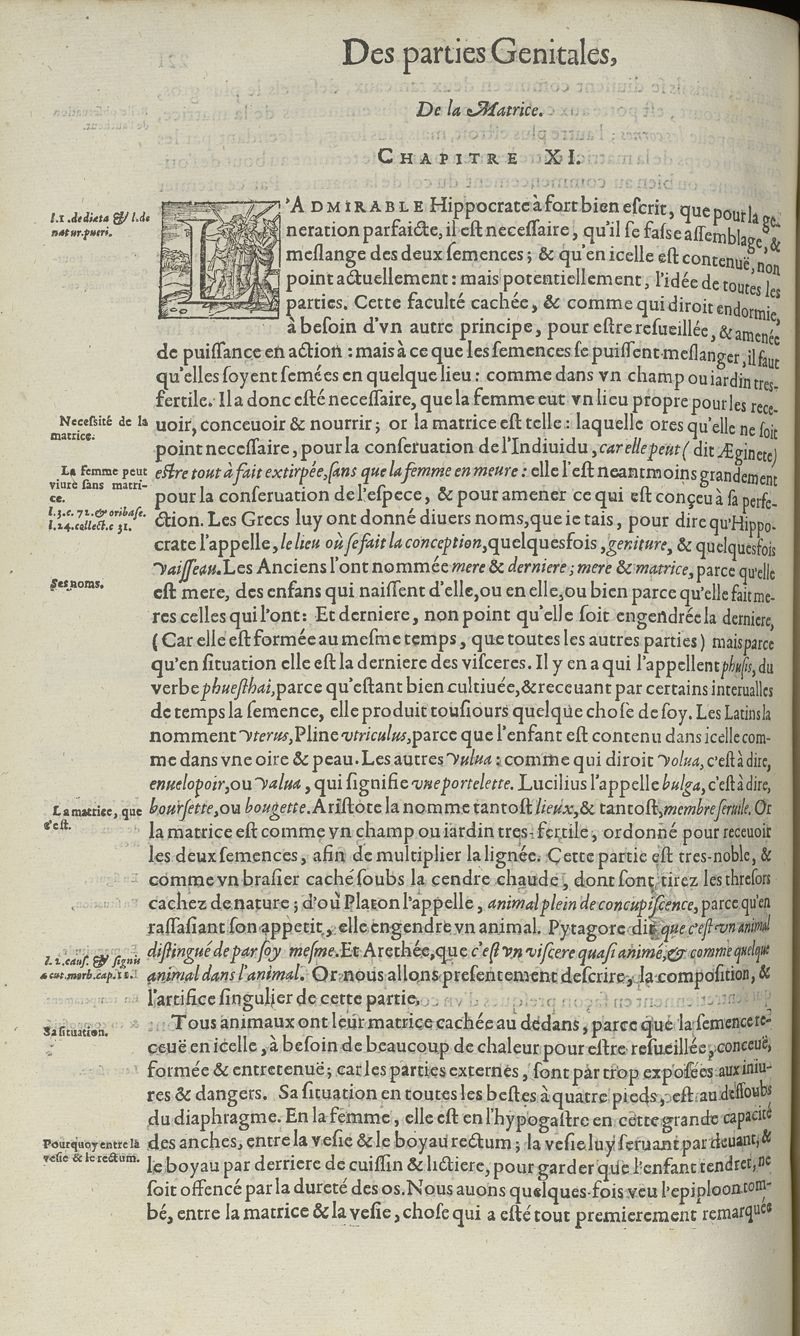 Des parties Genitales,
De la Matrice.
CHAPITRE XI.
l.1.de diæta & l.de
natur.pueri.
L'ADMIRABLE Hippocrate à fort bien eſcrit, que pour la ge-
neration parfaicte, il eſt neceſſaire, qu'il ſe faſse aſſemblage &
meſlange des deux ſemences; & qu'en icelle eſt contenuë, non
point actuellement: mais potentiellement, l'idée de toutes les
parties. Cette faculté cachée, & comme qui diroit endormie,
à beſoin d'vn autre principe, pour eſtre reſueillée, & amenée
de puiſſance en action: mais à ce que les ſemences ſe puiſſent meſlanger, il faut
qu'elles ſoyent ſemées en quelque lieu: comme dans vn champ ou iardin tres-
fertile. Il a donc eſté neceſſaire, que la femme eut vn lieu propre pour les rece-
Neceſsité de la
matrice.
uoir, conceuoir & nourrir; or la matrice eſt telle: laquelle ores qu'elle ne ſoit
point neceſſaire, pour la conſeruation de l'Indiuidu, car elle peut (dit Æginete)
La femme peut
viure ſans matri-
ce.
eſtre tout à fait extirpée, ſans que la femme en meure: elle l'eſt neantmoins grandement
pour la conſeruation de l'eſpece, & pour amener ce qui eſt conçeu à ſa perfe-
l.3.c. 72. & oribaſe.
l.24.collect.c 31.
ction. Les Grecs luy ont donné diuers noms, que ie tais, pour dire qu'Hippo-
crate l'appelle, le lieu où ſe fait la conception, quelquesfois, geniture, & quelquesfois
vaiſſeau. Les Anciens l'ont nommée mere & derniere; mere & matrice, parce qu'elle
Ses noms.
eſt mere, des enfans qui naiſſent d'elle, ou en elle, ou bien parce qu'elle fait me-
res celles qui l'ont: Et derniere, non point qu'elle ſoit engendrée la derniere,
(Car elle eſt formée au meſme temps, que toutes les autres parties) mais parce
qu'en ſituation elle eſt la derniere des viſceres. Il y en a qui l'appellent phuſis, du
verbe phueſthai, parce qu'eſtant bien cultiuée, & receuant par certains interualles
de temps la ſemence, elle produit touſiours quelque choſe de ſoy. Les Latins la
nomment vterus, Pline vtriculus, parce que l'enfant eſt contenu dans icelle com-
me dans vne oire & peau. Les autres vulua: comme qui diroit volua, c'eſt à dire,
enuelopoir, ou valua, qui ſignifie vne portelette. Lucilius l'appelle bulga, c'eſt à dire,
La matrice, que
c'eſt.
bourſette, ou bougette. Ariſtote la nomme tantoſt lieux, & tantoſt, membre ſeruile. Or
la matrice eſt comme vn champ ou iardin tres-fertile, ordonné pour receuoir
les deux ſemences, afin de multiplier la lignée. Cette partie eſt tres-noble, &
comme vn braſier caché ſoubs la cendre chaude, dont ſont tirez les threſors
cachez de nature; d'où Platon l'appelle, animal plein de concupiſcence, parce qu'en
raſſaſiant ſon appetit, elle engendre vn animal. Pytagore dit que c'eſt vn animal
l.2.cauſ. & ſignis
acut.morb.cap.11.
diſtingué de par ſoy meſme. Et Arethée, que c'eſt vn viſcere quaſi animé, & comme quelque
animal dans l'animal. Or nous allons preſentement deſcrire, la compoſition, &
l'artifice ſingulier de cette partie.
Sa ſituation.
Tous animaux ont leur matrice cachée au dedans, parce que la ſemence re-
ceuë en icelle, à beſoin de beaucoup de chaleur pour eſtre reſueillée, conceuë,
formée & entretenuë; car les parties externes, ſont par trop expoſées aux iniu-
res & dangers. Sa ſituation en toutes les beſtes à quatre pieds, eſt au deſſoubs
du diaphragme. En la femme, elle eſt en l'hypogaſtre en cette grande capacité
Pourquoy entre la
veſie & le rectum.
des anches, entre la veſie & le boyau rectum; la veſie luy ſeruant par deuant, &
le boyau par derriere de cuiſſin & lictiere, pour garder que l'enfant tendret, ne
ſoit offencé par la dureté des os. Nous auons quelques-fois veu l'epiploon tom-
bé, entre la matrice & la veſie, choſe qui a eſté tout premierement remarquée